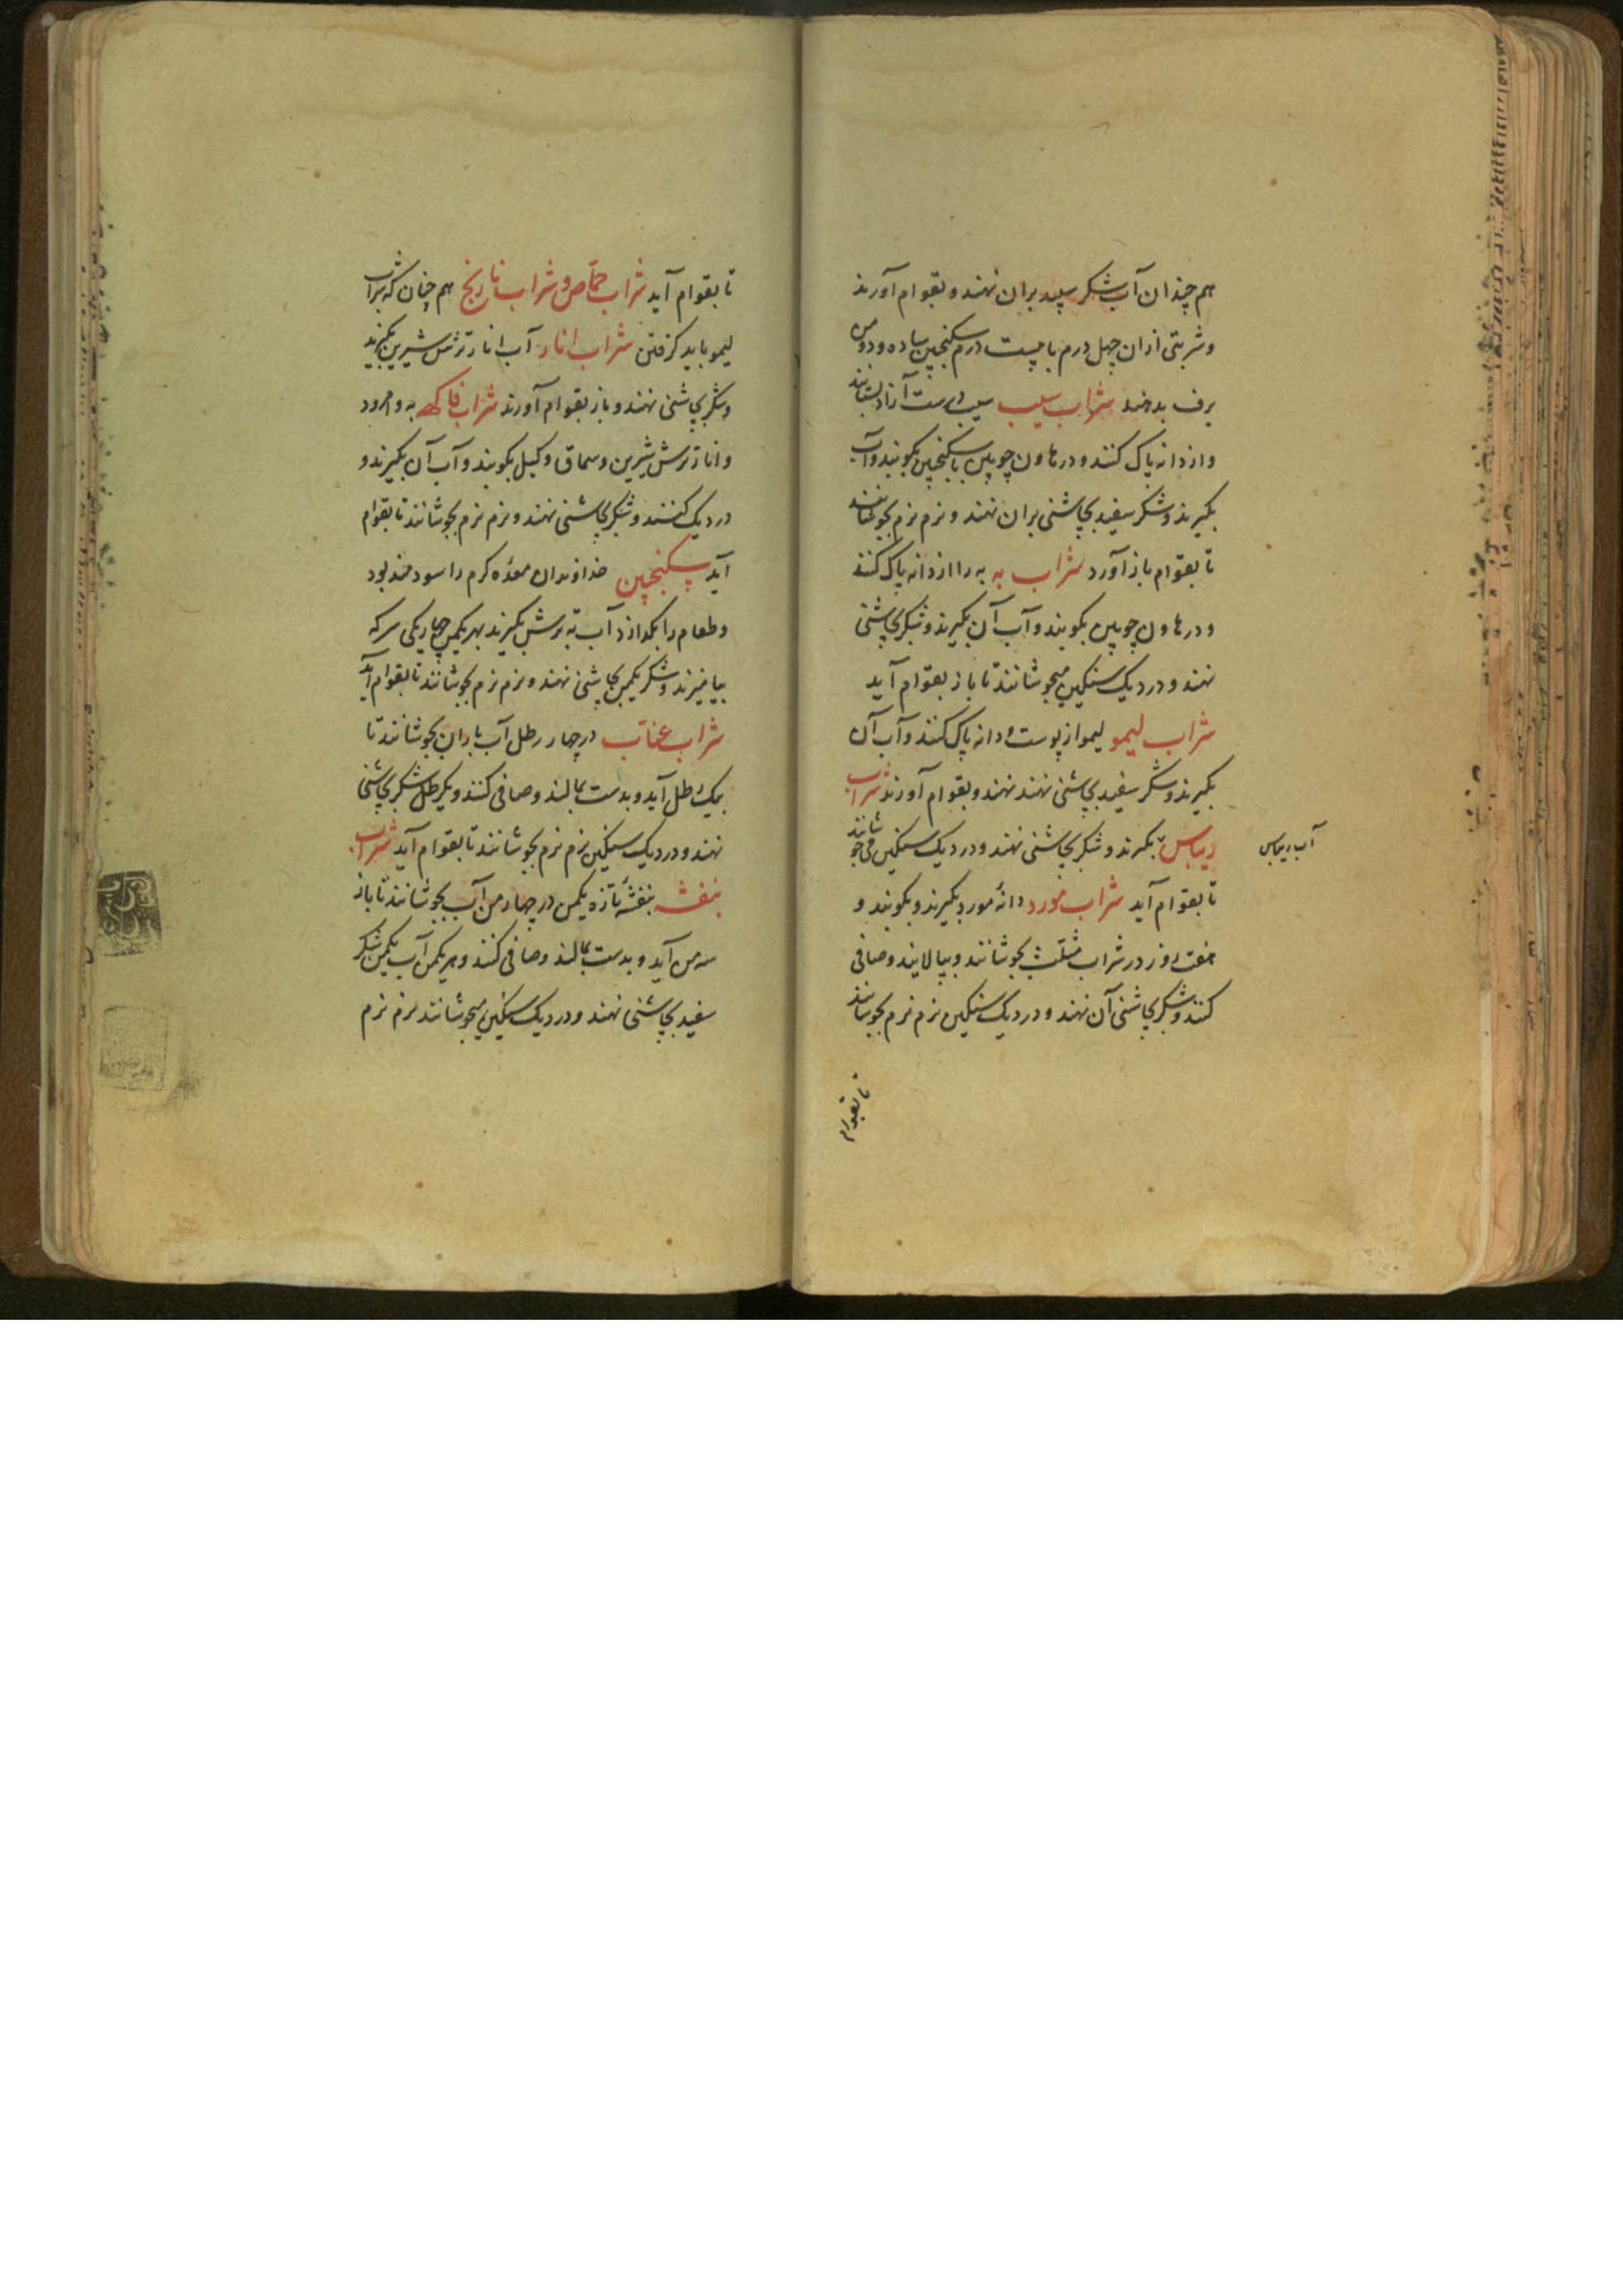 هم چندان آب شکر سپید بران نهند و بقوام آورند
و شربتی ازان چهل درم با بیست درم سکنجبین ساده و دو من
برف بدهند شراب سیب سیب درست آزاد بستانند
و از دانه پاک کنند و در هاون چوبین با سکنجبین بکوبند و آب
بگیرند و شکر سفید بچاشنی بران نهند و نرم نرم بجوشانند
تا بقوام باز آورد شراب به به را از دانه پاک کنند
و در هاون چوبین بکوبند و آب آن بگیرند و شکر بچاشنی
نهند و در دیک سنکین میجوشانند تا باز بقوام آید
شراب لیمو لیمو از پوست و دانه پاک کنند و آب آن
بگیرند و شکر سفید بچاشنی نهند نهند و بقوام آورند شراب
ریباس بگیرند و شکر بچاشنی نهند و در دیک سنکین می جوشانند
آب ریباس
تا بقوام آید شراب مورد دانهٔ مورد بگیرند و بکوبند و
هفت روز در شراب مثلث بجوشانند و بپالایند و صافی
کنند و شکر بچاشنی آن نهند و در دیک سنکین نرم نرم بجوشانند
تا بقوام
تا بقوام آید شراب حماض و شراب نارنج هم چنان که شراب
لیمو باید کرفتن شراب انار آب انار ترش شیرین بگیرند
و شکر بچاشنی نهند و باز بقوام آورند شراب فاکهه به و امرود
و انار ترش شیرین و سماق و کیل بکوبند و آب آن بگیرند و
در دیک کنند و شکر بچاشنی نهند و نرم نرم بجوشانند تا بقوام
آید سکنجبین خداوندان معدهٔ کرم را سودمند بود
و طعام را بکدازد آب به ترش بگیرند بهر یکمن چهار یکی سرکه
بیامیزند و شکر یکمن بچاشنی نهند و نرم نرم بجوشانند تا بقوام آید
شراب عناب در چهار رطل آب باران بجوشانند تا
بیک رطل آید و بدست بمالند و صافی کنند و یکرطل شکر بچاشنی
نهند و در دیک سنکین نرم نرم بجوشانند تا بقوام آید شراب
بنفشه بنفشهٔ تازه یکمن در چهار من آب بجوشانند تا باز
سه من آید و بدست بمالند و صافی کنند و هر یکمن آب یکمن شکر
سفید بچاشنی نهند و در دیک سنکین میجوشانند نرم نرم